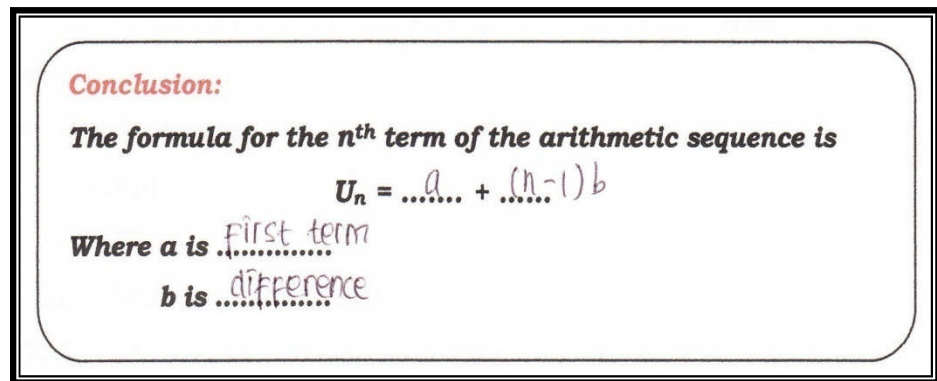 Conclusion:
The formula for the nth term of the arithmetic sequence is
Un = ...a... + (n-1)b
Where a is first term
b is difference